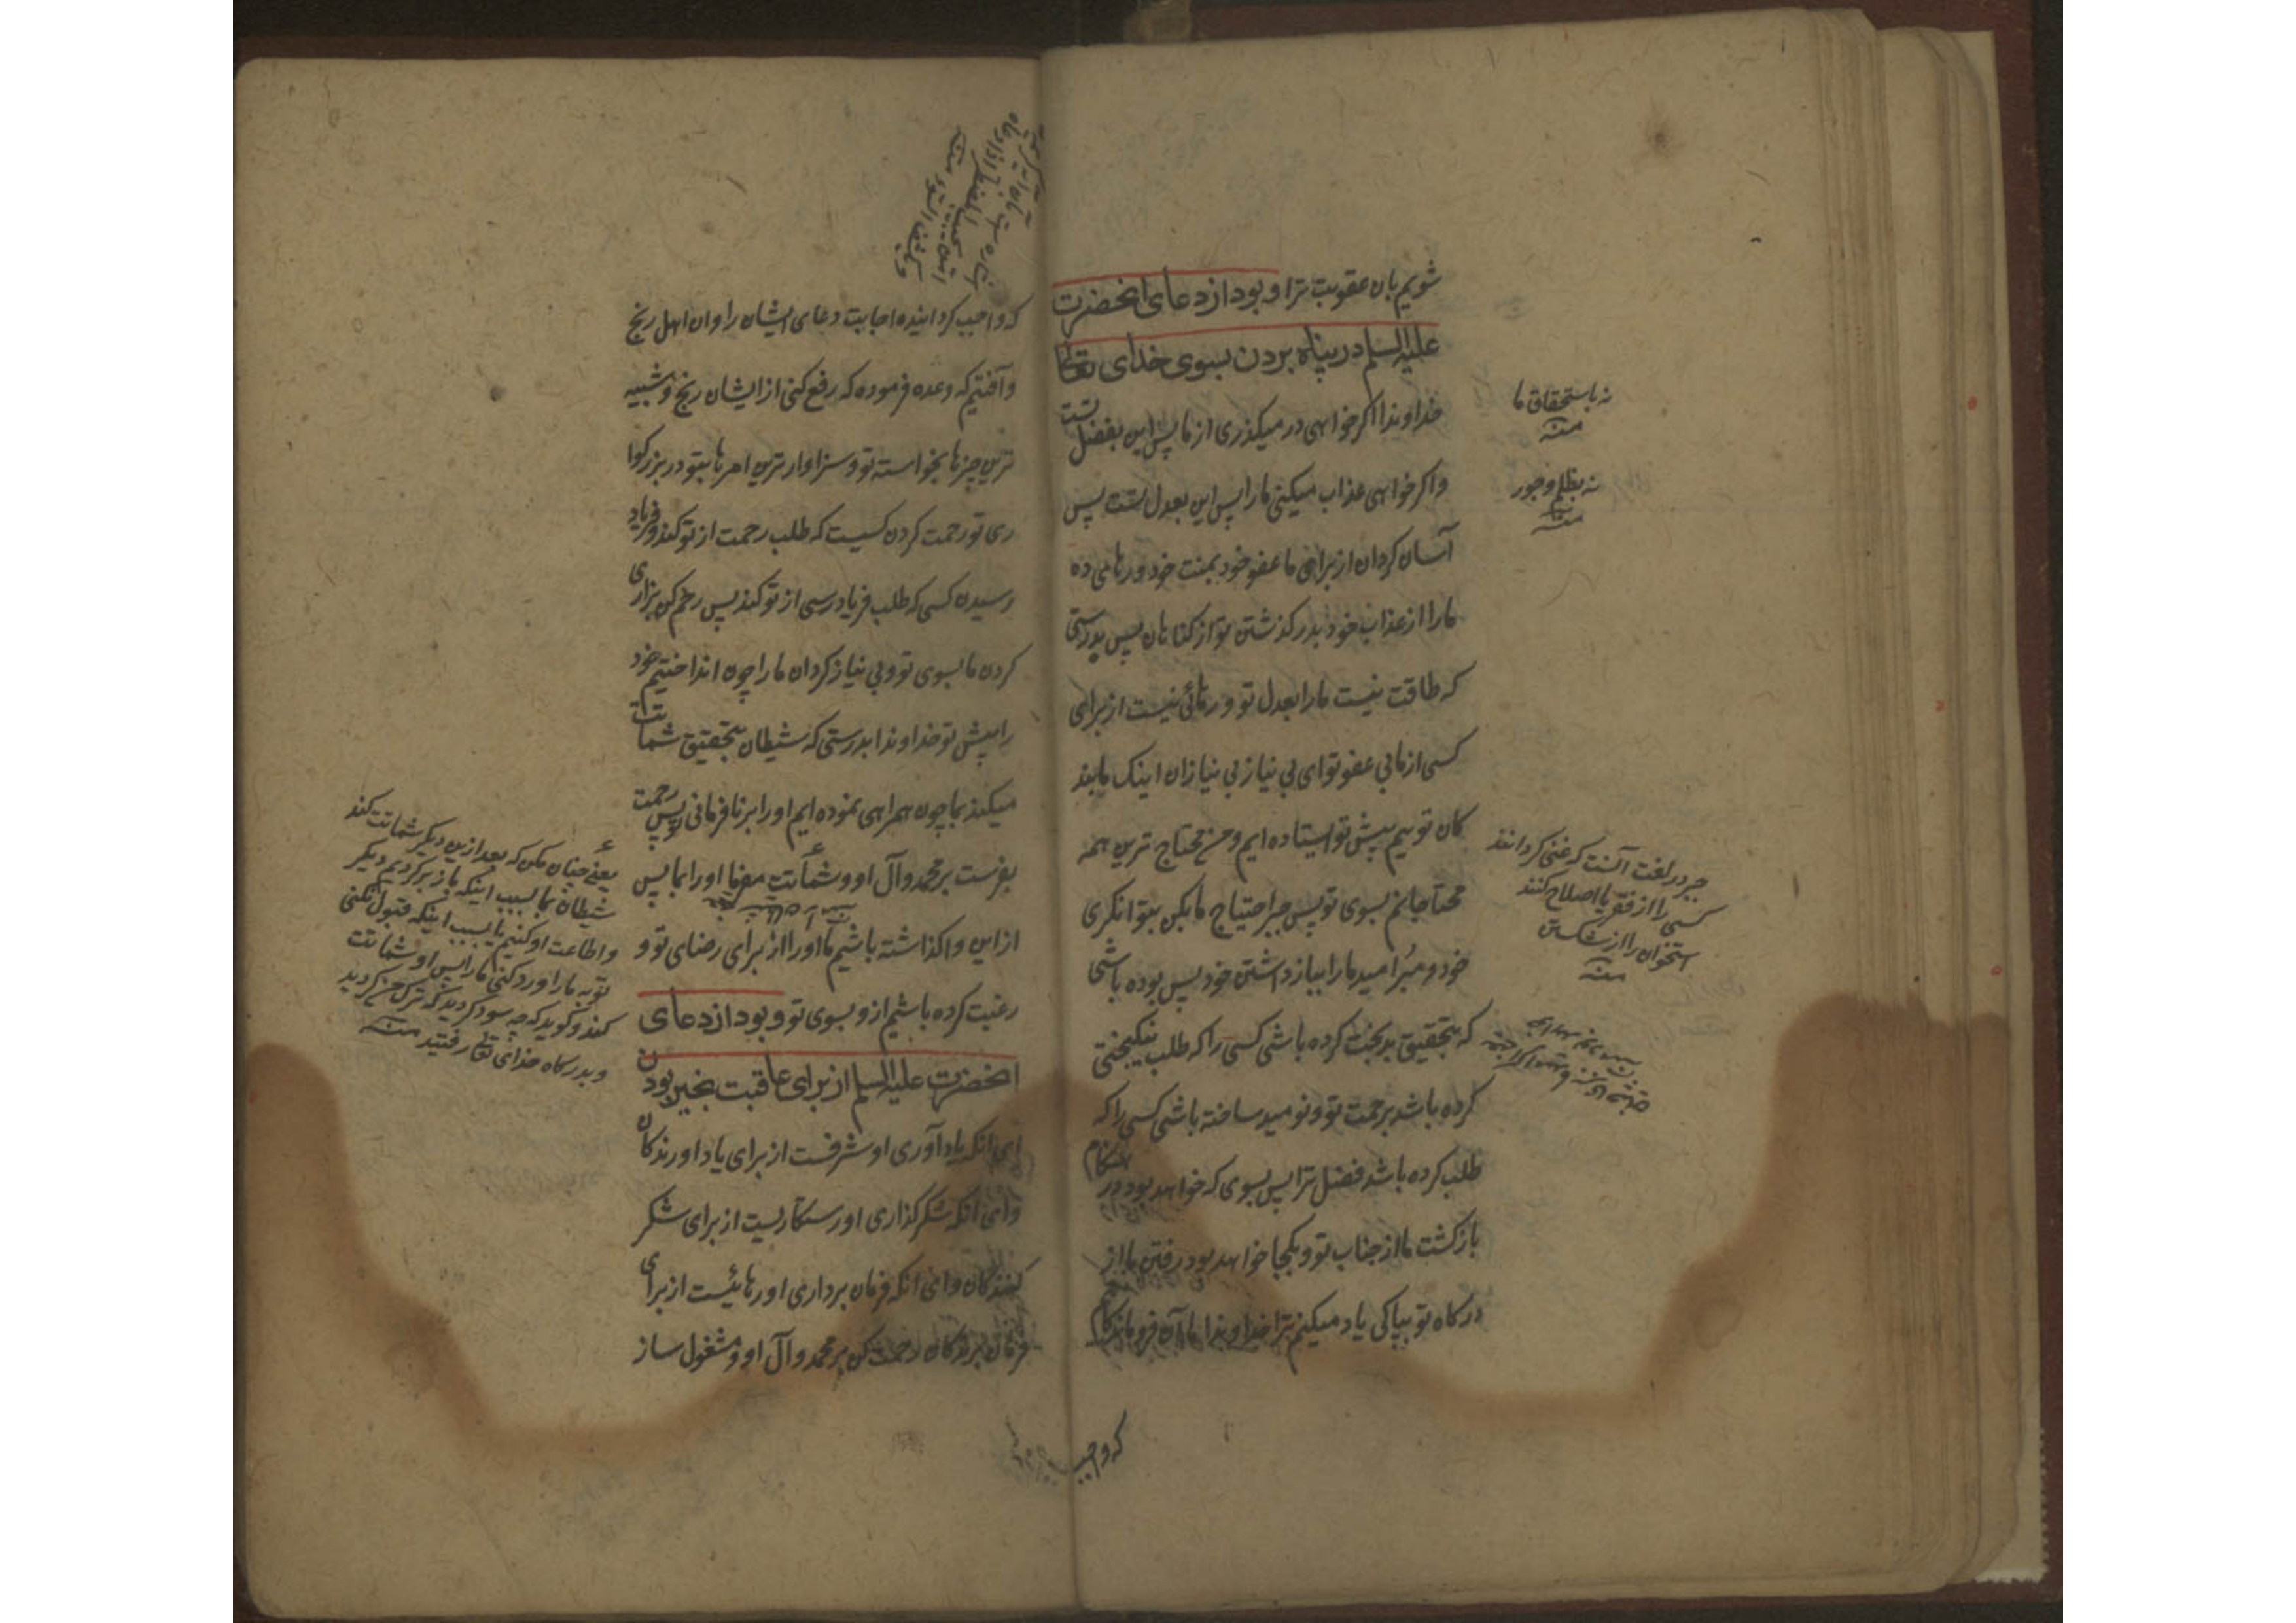 شویم بان عقوبت ترا و بود از دعای انحضرت
علیه السلم در پناه بردن بسوی خدای تعالی
خداوندا اکر خواهی در میکذری از ما پس این بفضل تست
واکر خواهی عذاب میکنی مارا پس این بعدل تست پس
آسان کردان از برای ما عفو خود بمنت خود و رهائی ده
مارا از عذاب خود بدر کذشتن تو از کناهان پس بدرستی
که طاقت نیست مارا بعدل تو و رهائی نیست از برای
کسی از ما بی عفو تو ای بی نیاز بی نیازان اینک ما بند
کان توییم پیش تو ایستاده ایم و من محتاج ترین همه
محتاجانم بسوی تو پس جبر احتیاج ما بکن بتوانکری
خود و مبر امید مارا بباز داشتن خود پس بوده باشی
که بتحقیق بدبخت کرده باشی کسی را که طلب نیکبختی
کرده باشد برحمت تو و نومید ساخته باشی کسی را که
طلب کرده باشد فضل ترا پس بسوی که خواهد بود در هنکام
بازکشت ما از جناب تو و بکجا خواهد بود رفتن ما از
درکاه تو بپاکی یاد میکنم ترا خداوندا ما آن فروماندکانیم
که واجب
نه باستحقاق ما
منه
نه بظلم و جور
منه
جبر در لغت آنست که غنی کردانند
کسی را از فقر یا اصلاح کنند
استخوان را از شکستن
منه
که واجب کردانیده اجابت دعای ایشان را وان اهل رنج
وآفتیم که وعده فرموده که رفع کنی از ایشان رنج و شبیه
ترین چیزها بخواسته تو و سزاوار ترین امرها بتو در بزرکوا
ری تو رحمت کردن کسیست که طلب رحمت از تو کند و فریاد
رسیدن کسی که طلب فریادرسی از تو کند پس رحم کن بزاری
کردن ما بسوی تو و بی نیاز کردان مارا چون انداختیم خود
را پیش تو خداوندا بدرستی که شیطان بتحقیق شماتت
میکند بما چون همراهی نموده ایم اورا بر نافرمانی تو پس رحمت
بفرست بر محمد وآل او و شماتت مفرما اورا بما پس
ازاین واکذاشته باشیم ما اورا از برای رضای تو و
رغبت کرده باشیم از و بسوی تو و بود از دعای
انحضرت علیه السلم از برای عاقبت بخیر بودن
ای انکه یاد آوری او شرفست از برای یاد اورندکان
وای انکه شکر کذاری او رستکاریست از برای شکر
کنندکان وای انکه فرمان برداری او رهائیست از برای
فرمان برندکان رحمت کن بر محمد وآل او و مشغول ساز
یعنی چنان مکن که بعد ازین دیکر شماتت کند
شیطان بما بسبب اینکه باز برکردیم دیکر
و اطاعت او کنیم یا بسبب اینکه قبول نکنی
توبه مارا و رد کنی مارا پس او شماتت
کند و کوید که چه سود کردید که ترک من کردید
و بدرکاه خدای تعالی رفتید منه